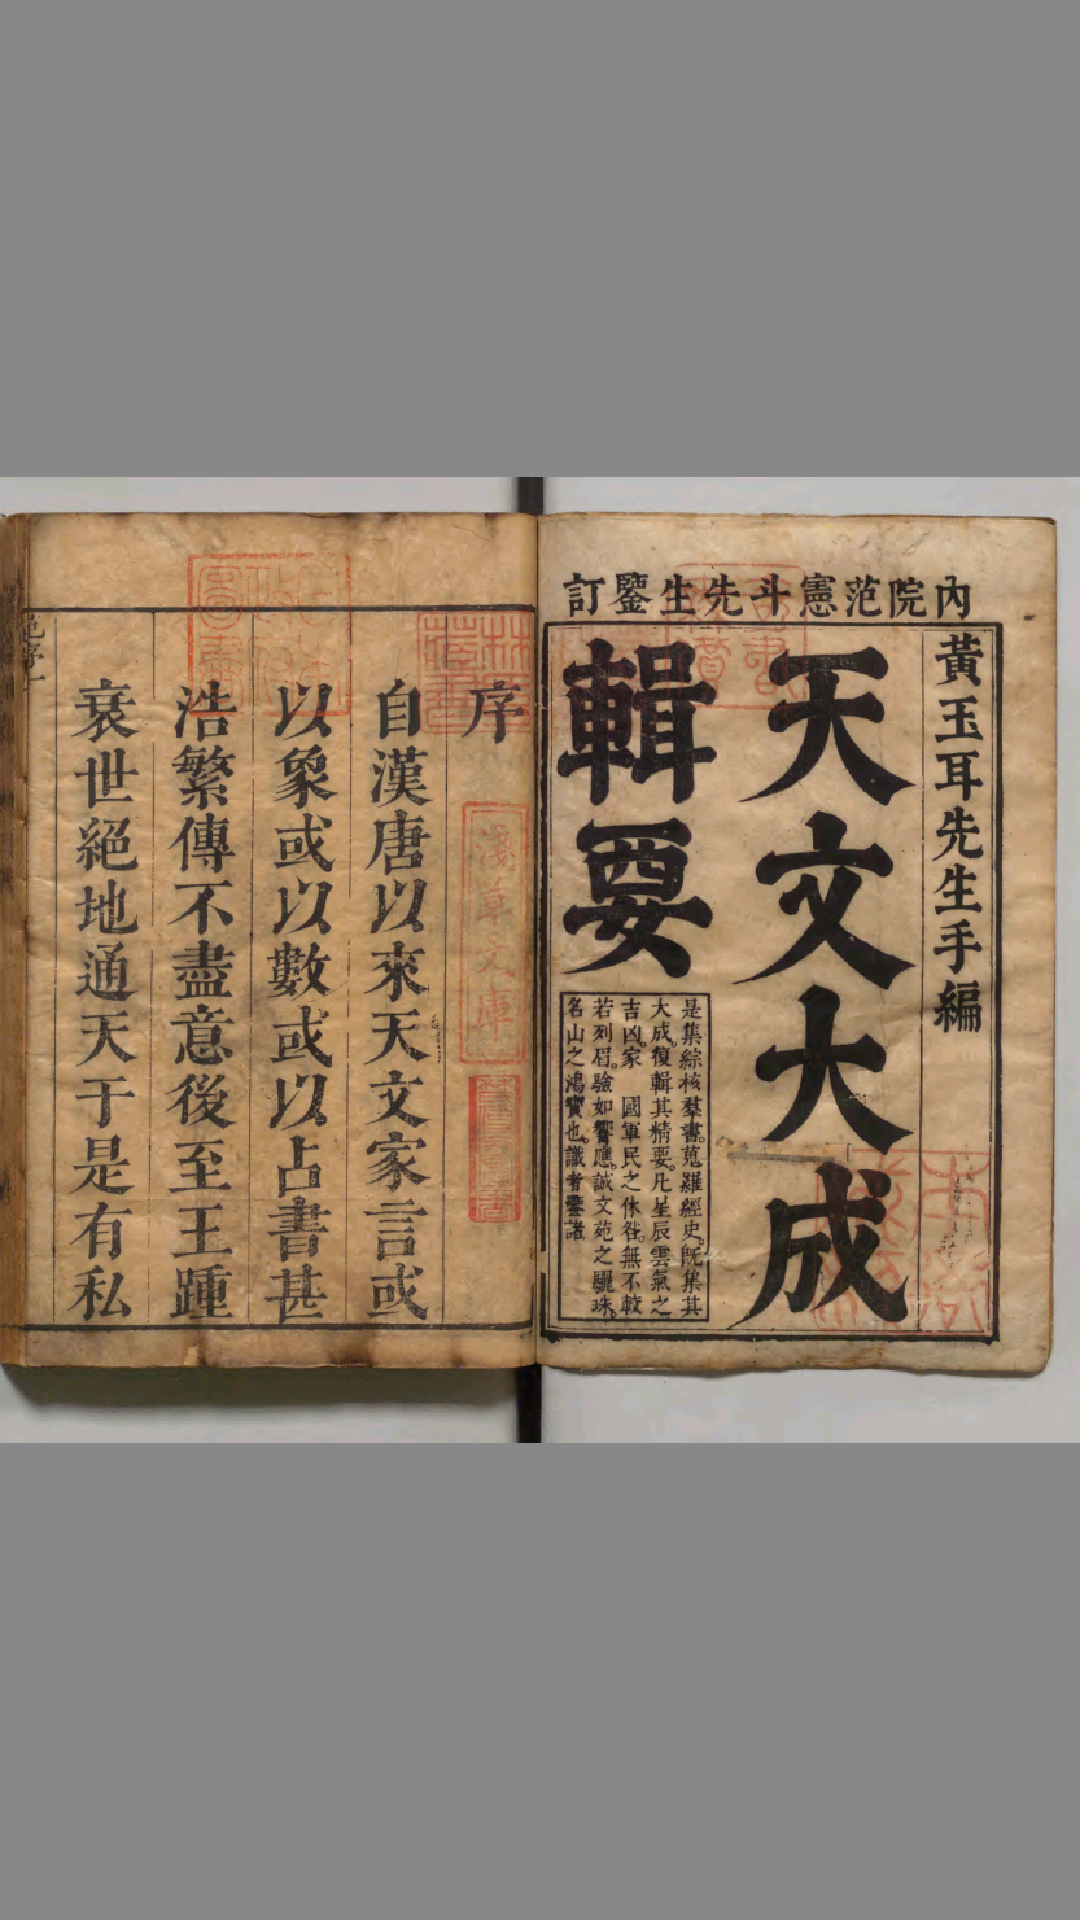 內院范憲斗先生鑒訂
黃玉耳先生手編
天文大成
輯要
是集綜核羣書。蒐羅經史。旣集其
大成。復輯其精要。凡星辰雲氣之
吉凶。家　國軍民之休咎。無不較
若列眉。驗如響應。誠文苑之驪珠。
名山之鴻寶也。識者鑒諸
序
淺草文庫
自漢唐以來天文家言或
以象或以數或以占書甚
浩繁傳不盡意後至王踵
衰世絕地通天于是有私